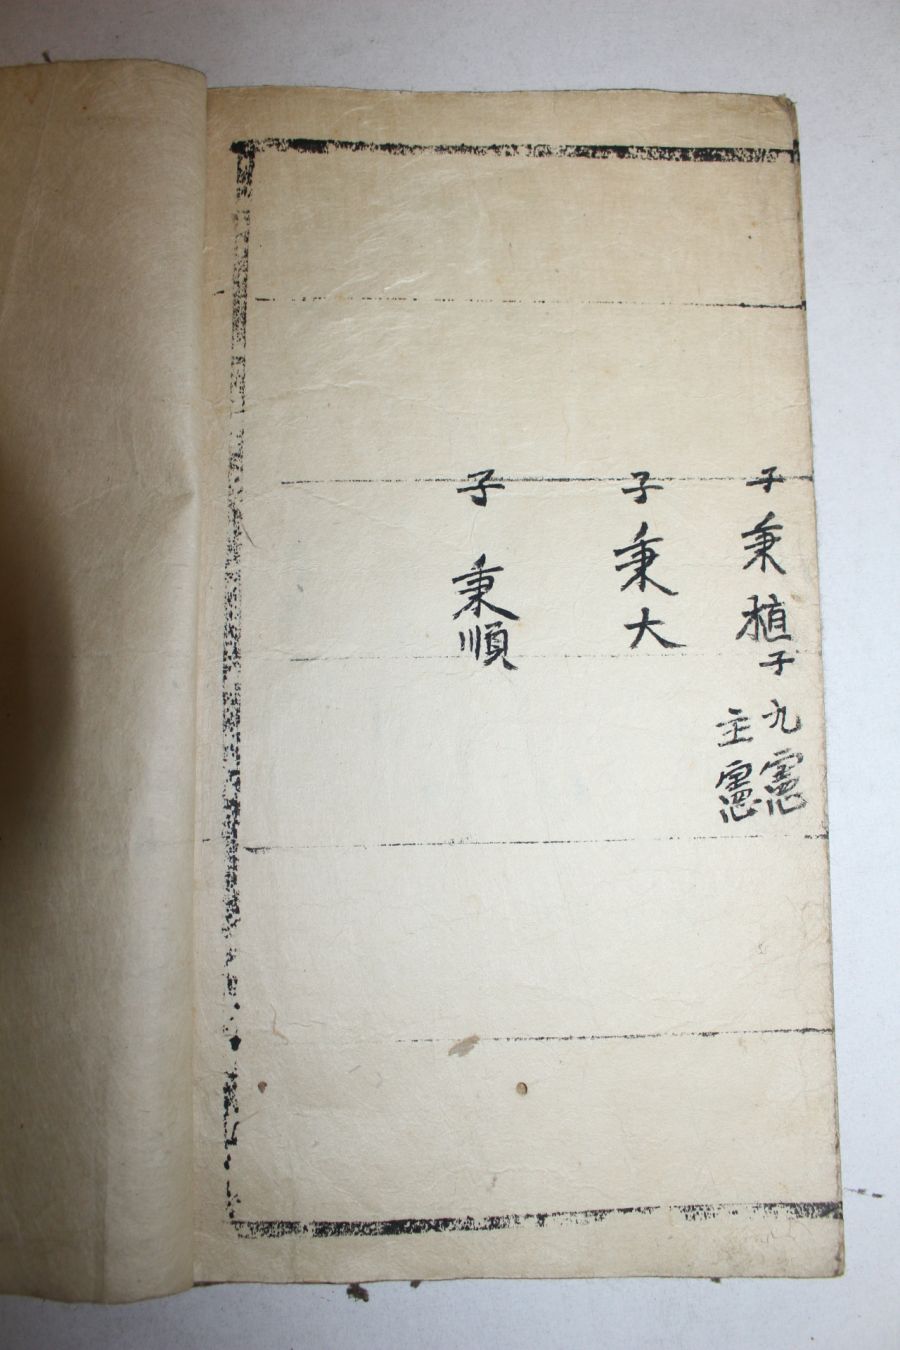 子秉植
子九憲
主憲
子秉大
子秉順